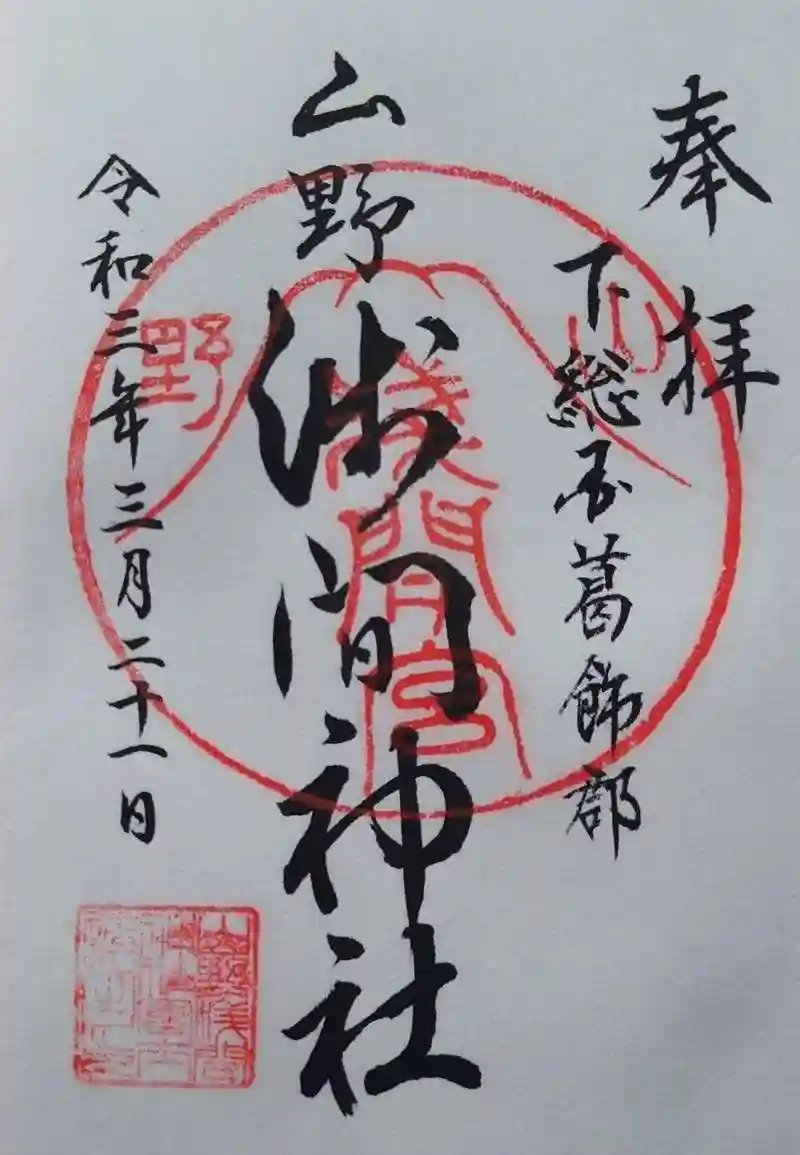 奉拝
下総国葛飾郡
山野
浅間神社
令和三年三月二十一日
山
野
浅間宮